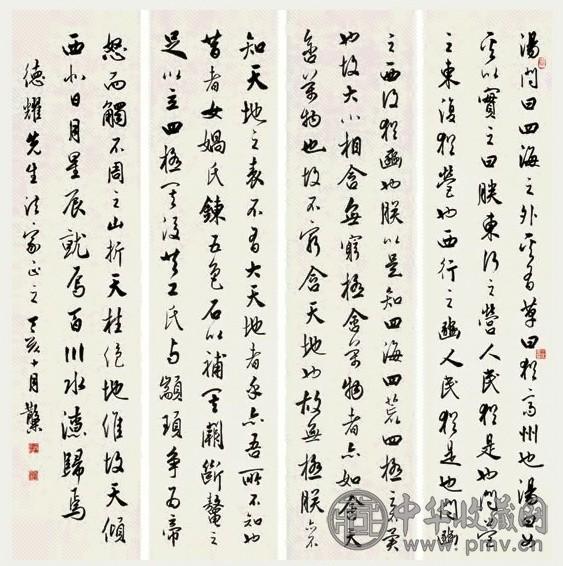 湯問曰四海之外奚有革曰猶齊州也湯曰女
奚以實之曰朕東行之營人民猶是也問營
之東復猶營也西行之豳人民猶是也問豳
之西復猶豳也朕以是知四海四荒四極之不異
也故大小相含無窮極含萬物者亦如含天
含萬物也故不窮含天地也故無極朕亦不
知天地之表不有大天地者乎亦吾所不知也
昔者女媧氏鍊五色石以補其闕斷鼇之
足以立四極其後共工氏與顓頊爭為帝
怒而觸不周之山折天柱絕地維故天傾
西北日月星辰就焉百川水潦歸焉
德耀先生法家正之丁亥十月
中华收藏网
www.pmv.cn